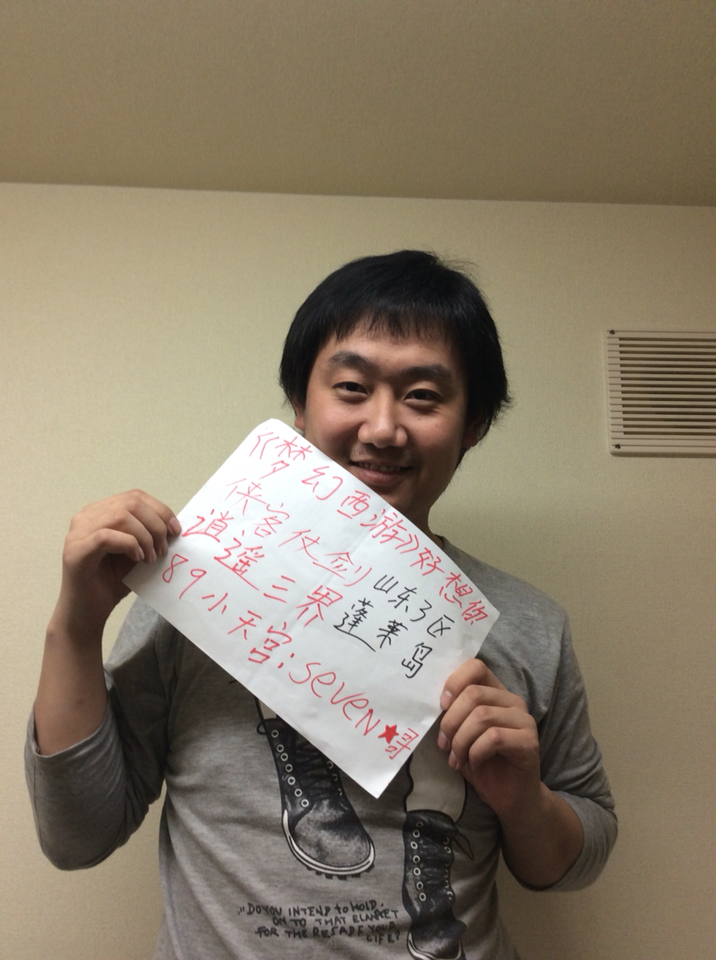 《梦幻西游》好想你
侠客仗剑
逍遥三界
89小天宫:seven★哥
山东3区
蓬莱岛
"DO YOU INTEND TO HOLD
ON TO THAT BLANKET
FOR THE RES OF YOUR
LIFE?